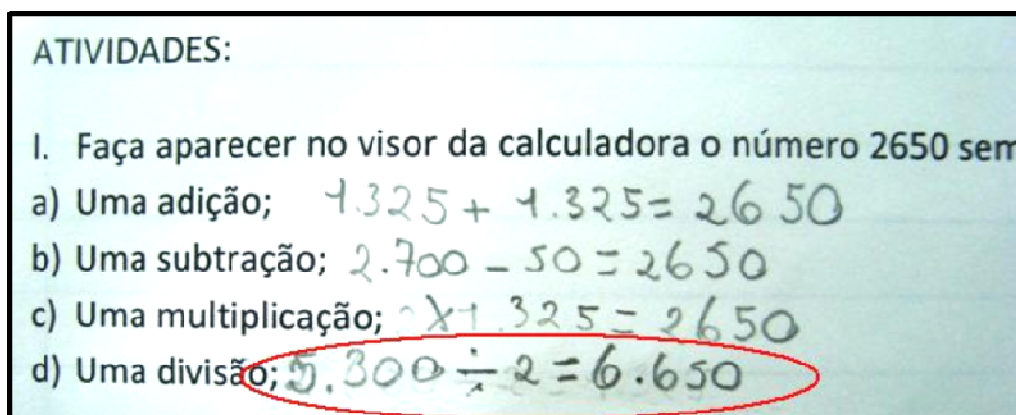 ATIVIDADES:
I. Faça aparecer no visor da calculadora o número 2650 sem
a) Uma adição; 1.325 + 1.325 = 2650
b) Uma subtração; 2.700 - 50 = 2650
c) Uma multiplicação; x 1.325 = 2650
d) Uma divisão; 5.300 ÷ 2 = 6.650